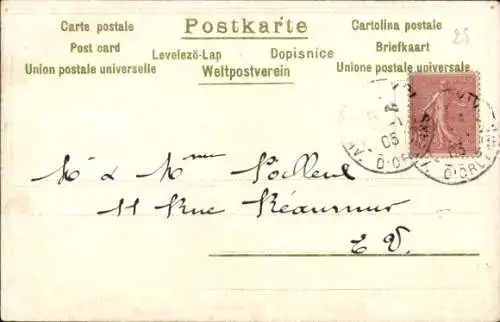 Carte postale Postkarte Cartolina postale
Post card Levelező-Lap Dopisnice Briefkaart
Union postale universelle Weltpostverein Unione postale universale
25
05
M & Mme
11 Rue Réaumur
E. V.